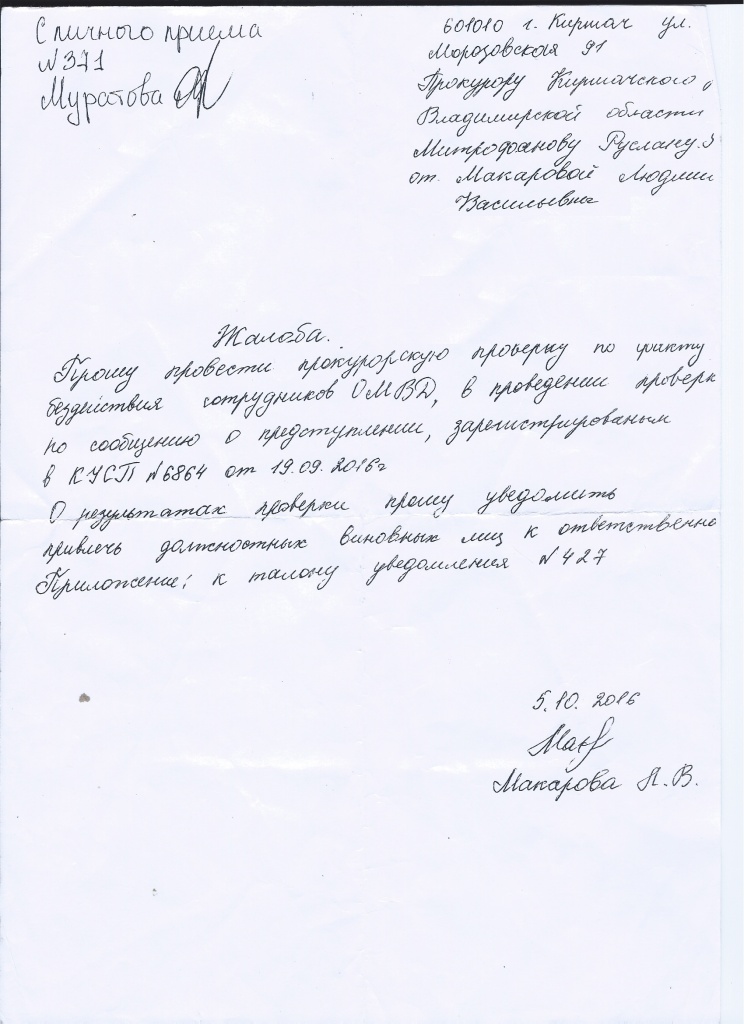 С личного приема
№371
Муратова
601010 г. Киржач ул.
Морозовская 91
Прокурору Киржачского
Владимирской области
Митрофанову Руслану
от Макаровой Людмил
Васильевны
Жалоба.
Прошу провести прокурорскую проверку по факту
бездействия сотрудников ОМВД, в проведении проверк
по сообщению о предступлении, зарегистрированым
в КУСП №6864 от 19.09.2016г
О результатах проверки прошу уведомить
привлечь должностных виновных лиц к ответственно
Приложение: к талону уведомления №427
5.10.2016
Макарова Л.В.